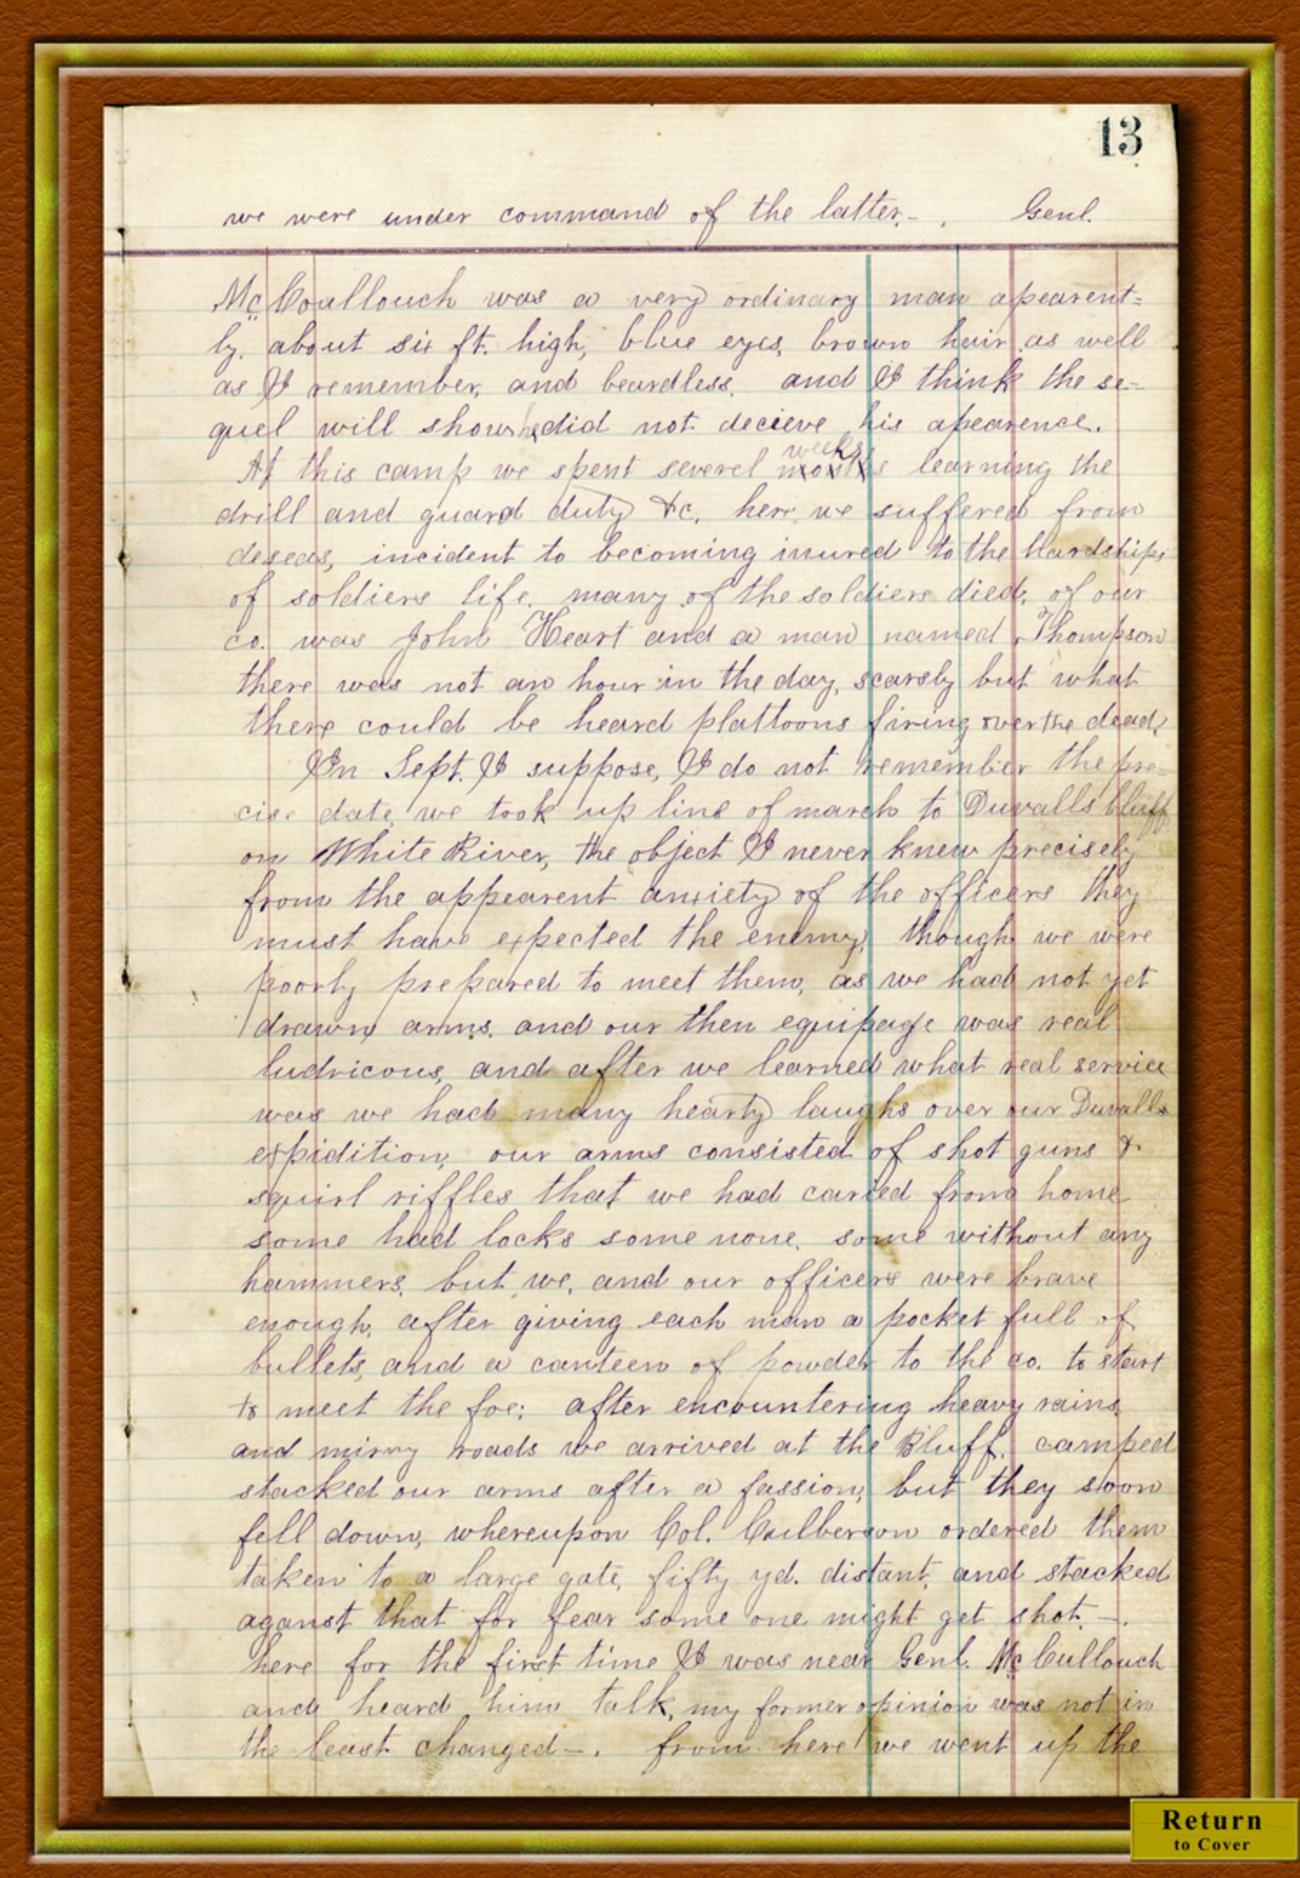 13
we were under command of the latter.- . Genl.
McCoullouch was a very ordinary man apearent=
ly. about six ft. high, blue eyes, brown hair, as well
as I remember, and beardless. and I think the se-
quel will show he did not decieve his apearence.
At this camp we spent severel weeks months learning the
drill and guard duty &c, here we suffered from
deseas, incident to becoming inured to the hardships
of soldiers life. many of the soldiers died, of our
co. was John Heart and a man named Thompson
there was not an hour in the day, scarsly but what
there could be heard plattoons firing over the dead,
In Sept. I suppose, I do not remember the pre=
cise date, we took up line of march to Duvalls bluff
on White River, the object I never knew precisely
from the appearent anxiety of the officers they
must have expected the enemy, though we were
poorly prepared to meet them, as we had not yet
drawn arms, and our then equipage was real
ludricous, and after we learned what real service
was we had many hearty laughs over our Duvalls
expidition, our arms consisted of shot guns &
squirl riffles that we had caried from home
some had locks some none, some without any
hammers, but we, and our officers were brave
enough, after giving each man a pocket full of
bullets, and a canteen of powder to the co. to start
to meet the foe; after encountering heavy rains
and mirey roads we arrived at the Bluff, camped
stacked our arms after a fassion, but they soon
fell down, whereupon Col. Culberson ordered them
taken to a large gate, fifty yd. distant, and stacked
aganst that for fear some one might get shot -.
here for the first time I was near Genl. McCullouch
and heard him talk, my former opinion was not in
the least changed -. from here we went up the
Return
to Cover